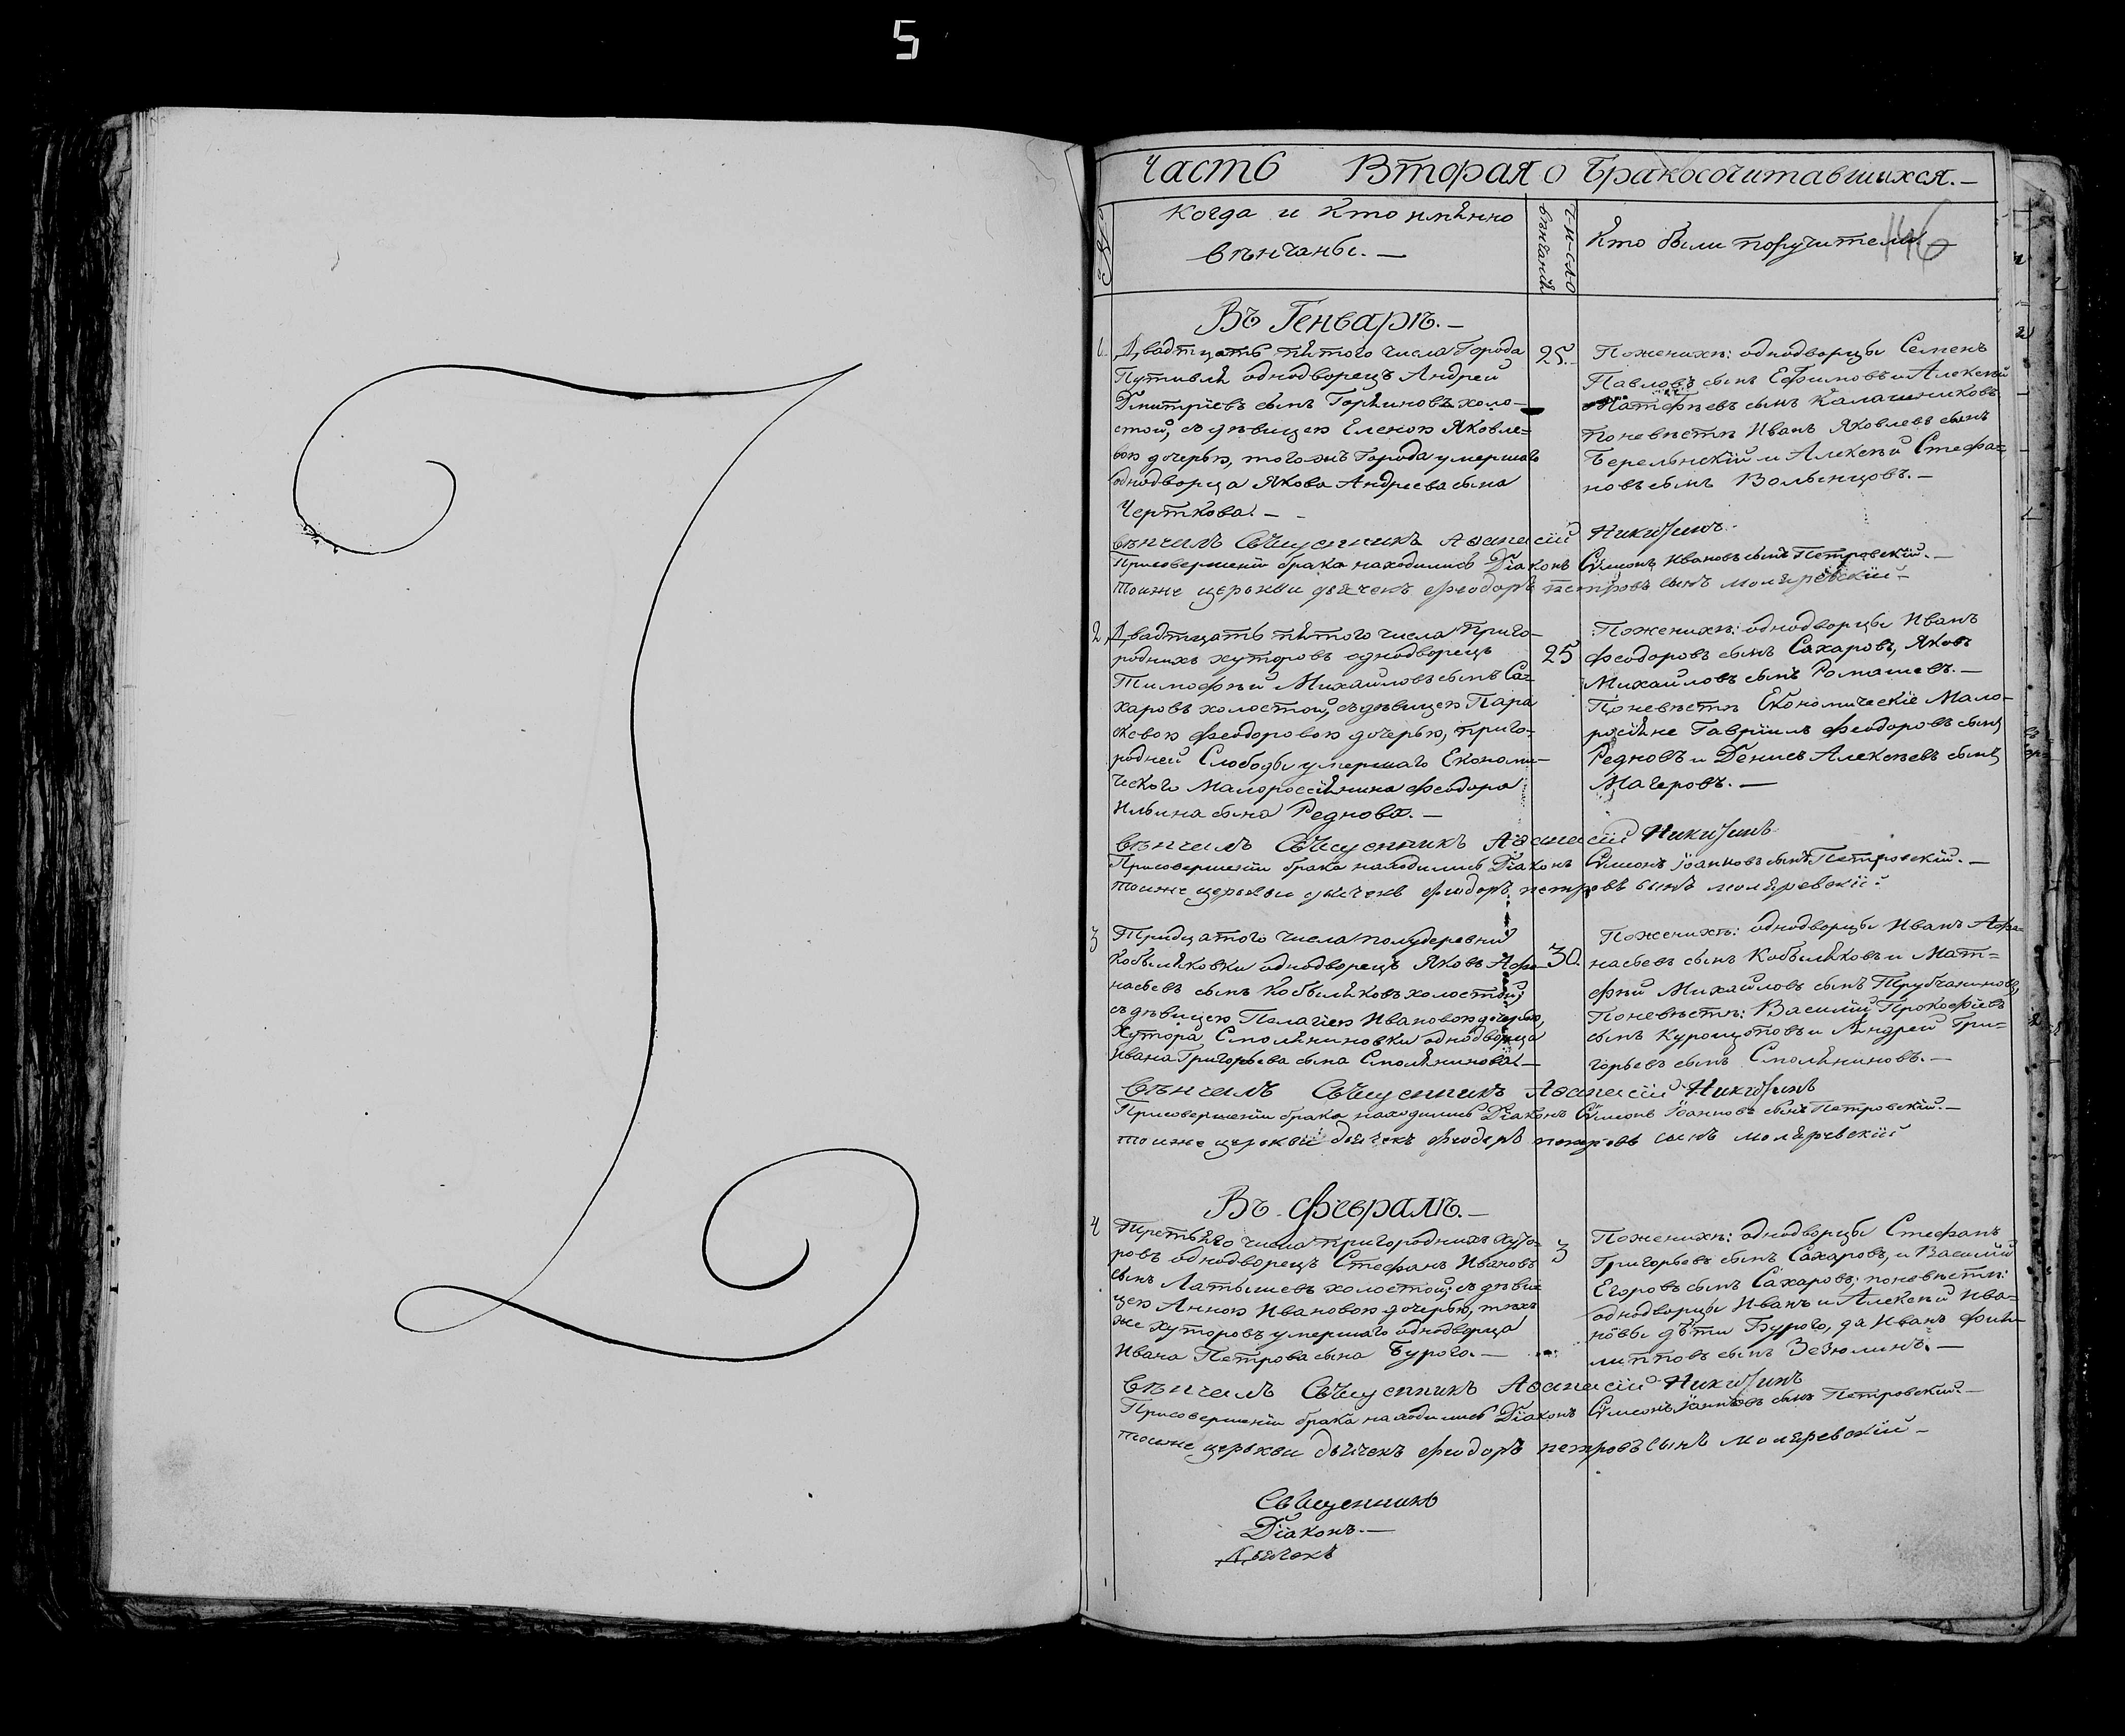 5
Часть Вторая о Бракосочитавшихся.—
146
Когда и Кто имянно
вѣнчаны.—
Число
вѣнчаній
Кто были поручители
Въ Генварѣ.—
1. Двадтцать пятого числа Города
Путивля однодворецъ Андрей
Дмитріевъ сынъ Горяиновъ холо-
стой, съ дѣвицею Еленою Яковле=
вою дочерью, того жъ Города умершаго
однодворца Якова Андреева сына
Черткова.—
25.
Поженихѣ: однодворцы Семенъ
Павловъ сынъ Ефимовъ и Алексѣй
Матфѣевъ сынъ Калашниковъ
Поневѣстѣ Иванъ Яковлевъ сынъ
и Алексѣй Стефа=
новъ сынъ Волынцовъ.—
вѣнчалъ Священникъ Аѳанасій Никитинъ
Присовершеніи брака находились Діаконъ Сѵмеонъ Ивановъ сынъ Петровскій.—
тояже церькви дьячекъ Феодоръ петровъ сынъ моляревскій—
2. Двадтцать пятого числа Приго-
родныхъ хуторовъ однодворецъ
Тимофѣй Михайловъ сынъ Са=
харовъ холостой, съ дѣвицею Пара
скевою Феодоровою дочерью, приго-
родней Слободы умершаго Економи-
ческого Малороссіянина Феодора
Ильина сына Реднова.—
25
Поженихѣ: однодворцы Иванъ
Феодоровъ сынъ Сахаровъ, Яковъ
Михайловъ сынъ Ромашевъ.—
Поневѣстѣ Економическіе Мало-
росіяне Гавріилъ Феодоровъ сынъ
Редновъ и Денисъ Алексѣевъ сынъ
Магеровъ.—
вѣнчалъ Священникъ Аѳанасій Никитинъ
Присовершеніи брака находились Діаконъ Сѵмеонъ Іоанновъ сынъ Петровскій.—
тояже церькви дьячекъ Феодоръ петровъ сынъ моляревскій
3 Тридцатого числа полудеревни
Кобыляковки однодворецъ Яковъ Афо-
насьевъ сынъ Кобыляковъ холостой;
съ дѣвицею Пелагіею Ивановою дочерью,
Хутора Смоляниновки однодворца
Ивана Григорьева сына Смолянинова.—
30.
Поженихѣ: однодворцы Иванъ Афо-
насьевъ сынъ Кобыляковъ и Мат=
фѣй Михайловъ сынъ Трубчаниновъ,
Поневѣстѣ: Василій Прокофіевъ
сынъ Куроцоповъ и Андрей Гри=
горьевъ сынъ Смоляниновъ.—
вѣнчалъ Священникъ Аѳанасій Никитинъ
Присовершеніи брака находились Діаконъ Сѵмеонъ Іоанновъ сынъ Петровскій.—
тояже церкви дьячекъ Феодоръ петровъ сынъ моляревскій
Въ Февралѣ.—
4 Третьяго числа пригородныхъ хуто-
ровъ однодворецъ Стефанъ Ивановъ
сынъ Латышевъ холостой; съ дѣви
цею Анною Ивановою дочерью, тѣхъ
же хуторовъ умершаго однодворца
Ивана Петрова сына Бурого.—
3
Поженихѣ: однодворцы Стефанъ
Григорьевъ сынъ Сахаровъ, и Василій
Егоровъ сынъ Сахаровъ; поневѣстѣ:
однодворцы Иванъ и Алексѣй Ива-
новы дѣти Бурого, да Иванъ Фи-
липповъ сынъ Зезюлинъ.—
вѣнчалъ Священникъ Аѳанасій Никитинъ
Присовершеніи брака находились Діаконъ Сѵмеонъ Іоанновъ сынъ Петровскій—
тояже церькви дьячекъ Феодоръ петровъ сынъ моляревскій—
Священникъ
Діаконъ.—
Дьячекъ